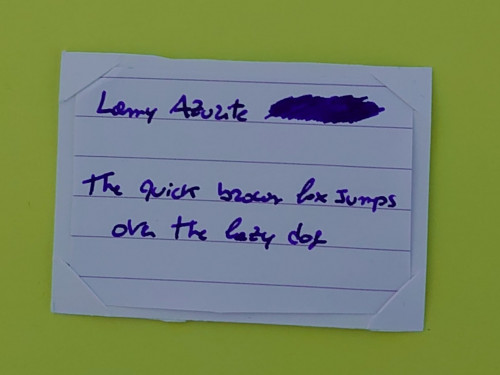 Lamy Azurite
The quick brown fox jumps
over the lazy dog